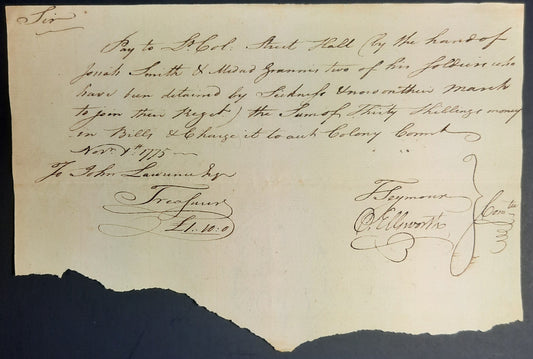 Sir
Pay to Lt. Col. Street Hall (by the hand of
Josiah Smith & Medad Grannis two of his Soldiers who
have been detained by Sickness & now on their march
to join their Regt.) the Sum of Thirty Shillings money
in Bills & Charge it to acct Colony Connt
Novr. 1st. 1775
To John Lawrence Esq
Treasurer
£1.10.0
T Seymour
O. Ellsworth
Comtee